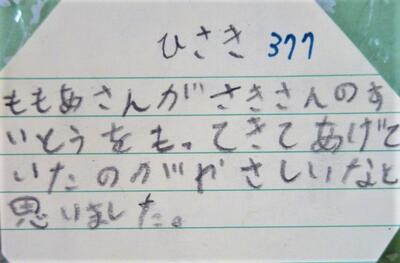 ひさき 377
ももあさんがさきさんのす
いとうをもってきてあげて
いたのがやさしいなと
思いました。